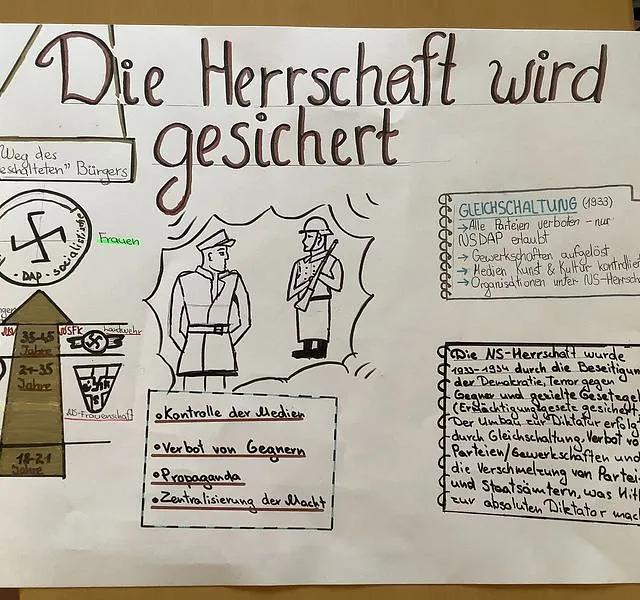 Die Herrschaft wird
gesichert
Weg des
eschalteten" Bürgers
DAP - sozialistische
Frauen
NSFK Landwehr
35-45
Jahre
21-35
Jahre
NS-Frauenschaft
18-21
Jahre
•Kontrolle der Medien
•Verbot von Gegnern
•Propaganda
•Zentralisierung der Macht
GLEICHSCHALTUNG (1933)
→Alle Parteien verboten - nur
NSDAP erlaubt
→Gewerkschaften aufgelöst
→Medien, Kunst & Kultur kontrollier
→Organisationen unter NS-Herrscha
Die NS-Herrschaft wurde
1933-1934 durch die Beseitigun
der Demokratie, Terror gegen
Gegner und gezielte Gesetzge
(Ermächtigungsgesetz) gesichert.
Der Umbau zur Diktatur erfolg
durch Gleichschaltung, Verbot vo
Parteien/Gewerkschaften und
die Verschmelzung von Partei-
und Staatsämtern, was Hitl
zur absoluten Diktator mach